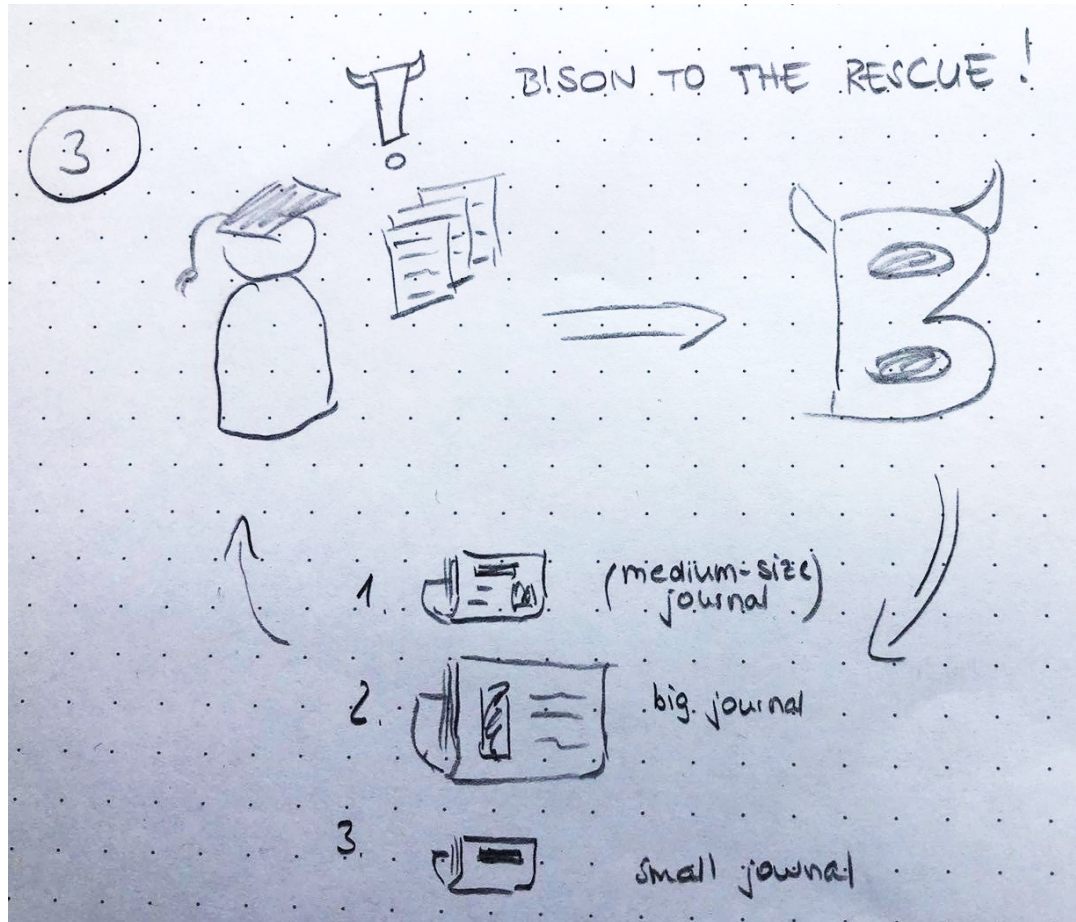 BISON TO THE RESCUE !
3
B
1. (medium-size
journal)
2. big journal
3. small journal